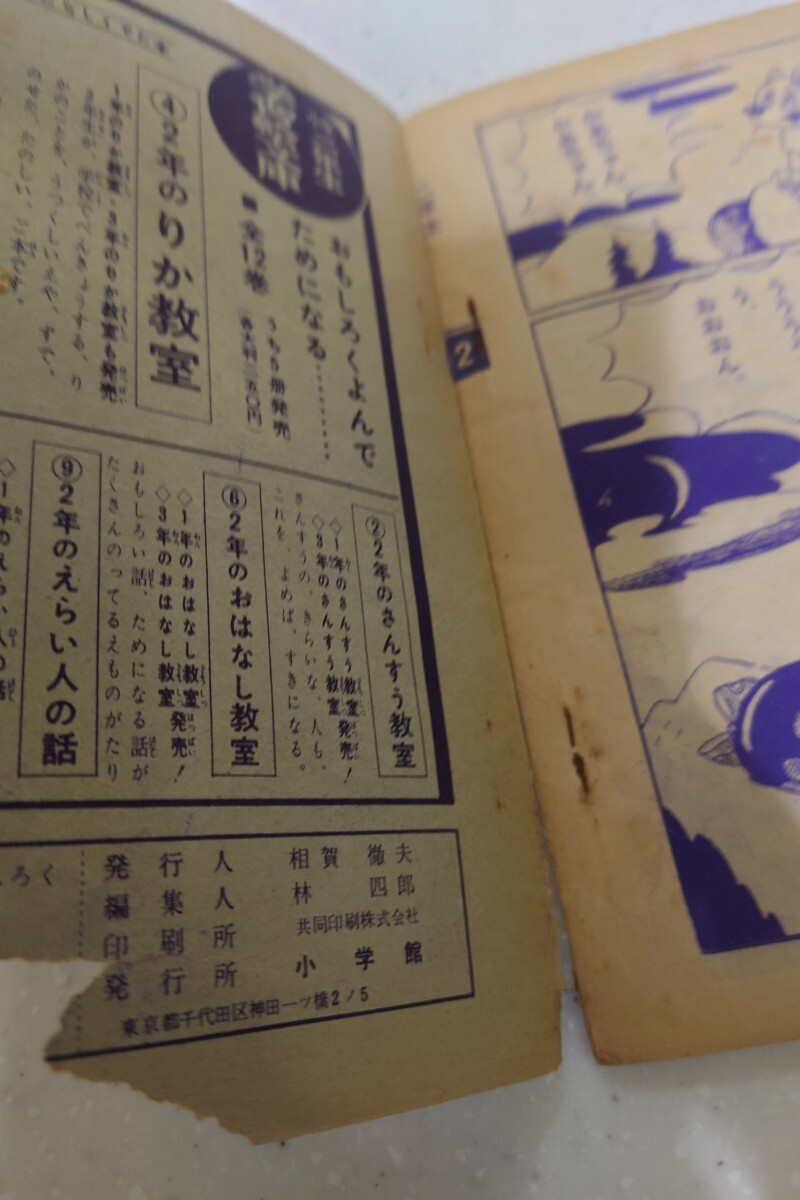 おもしろくよんで
ためになる………
全12巻
うち9册発売
(各大判二五〇円)
④2年のりか教室
1年のりか教室・3年のりか教室も発売
2年生が、学校でべんきょうする、り
かのことを、うつくしいえや、ずで、
のせた、たのしい、ご本です。
②2年のさんすう教室
◇1年のさんすう教室
◇3年のさんすう教室 発売!
さんすうの、きらいな、人も、
これを、よめば、すきになる。
⑥2年のおはなし教室
◇1年のおはなし教室
◇3年のおはなし教室 発売!
おもしろい話、ためになる話が
たくさんのってるえものがたり
⑨2年のえらい人の話
◇1年のえらい人の話
発行人 相賀徹夫
編集人 林四郎
印刷所 共同印刷株式会社
発行所 小学館
東京都千代田区神田一ツ橋2ノ5
ろく
2
う、
おおおん。